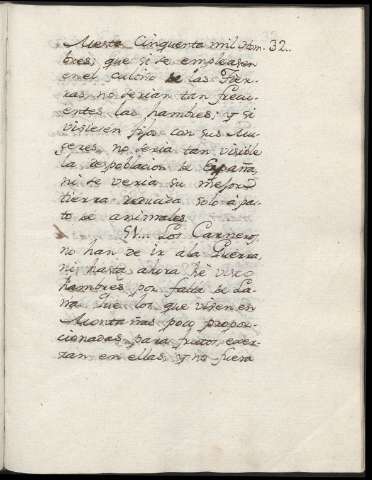 Mesta Cinquenta mil Hom- 32..
bres, que si se empleasen
en el cultivo de las Tier-
ras, no serian tan frecu-
entes las hambres; y si
viviesen fijos con sus Mu-
geres, no seria tan visible
la despoblacion de España,
ni se veria su mejor
tierra reducida solo à pas-
to de animales.
Los Carneros,
no han de ir ala Guerra,
ni hasta ahora hè visto
hambres por falta de La-
na. Que los que viven en
Montañas poco propor-
cionadas para frutos, exer-
zan en ellas, y no fuera